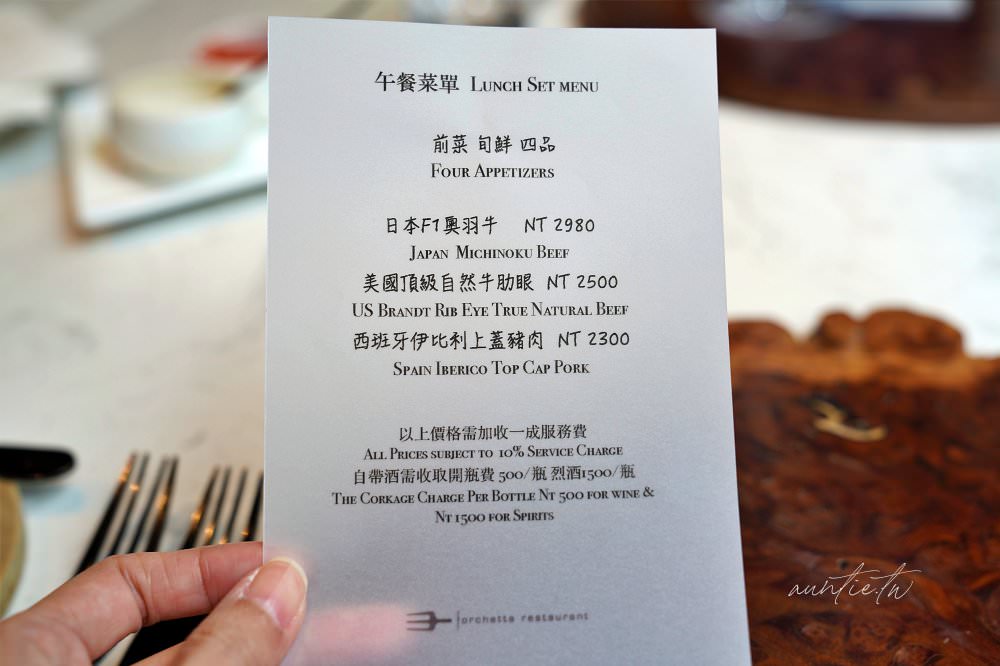 午餐菜單 LUNCH SET MENU
前菜 旬鮮 四品
FOUR APPETIZERS
日本F1奧羽牛 NT 2980
JAPAN MICHINOKU BEEF
美國頂級自然牛肋眼 NT 2500
US BRANDT RIB EYE TRUE NATURAL BEEF
西班牙伊比利上蓋豬肉 NT 2300
SPAIN IBERICO TOP CAP PORK
以上價格需加收一成服務費
ALL PRICES SUBJECT TO 10% SERVICE CHARGE
自帶酒需收取開瓶費 500/瓶 烈酒1500/瓶
THE CORKAGE CHARGE PER BOTTLE NT 500 FOR WINE &
NT 1500 FOR SPIRITS
orchette restaurant
auntie.tw